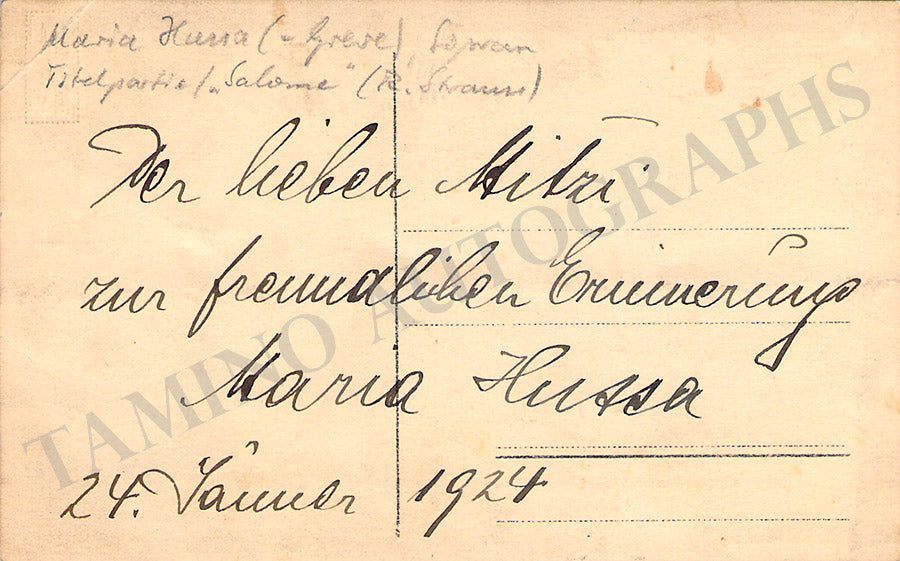 Maria Hussa (-Greve), Sopran
Titelpartie / "Salome" (R. Strauss)
Der lieben Mitzi
zur freundlichen Erinnerung
Maria Hussa
24. Jänner 1924
TAMINO AUTOGRAPHS